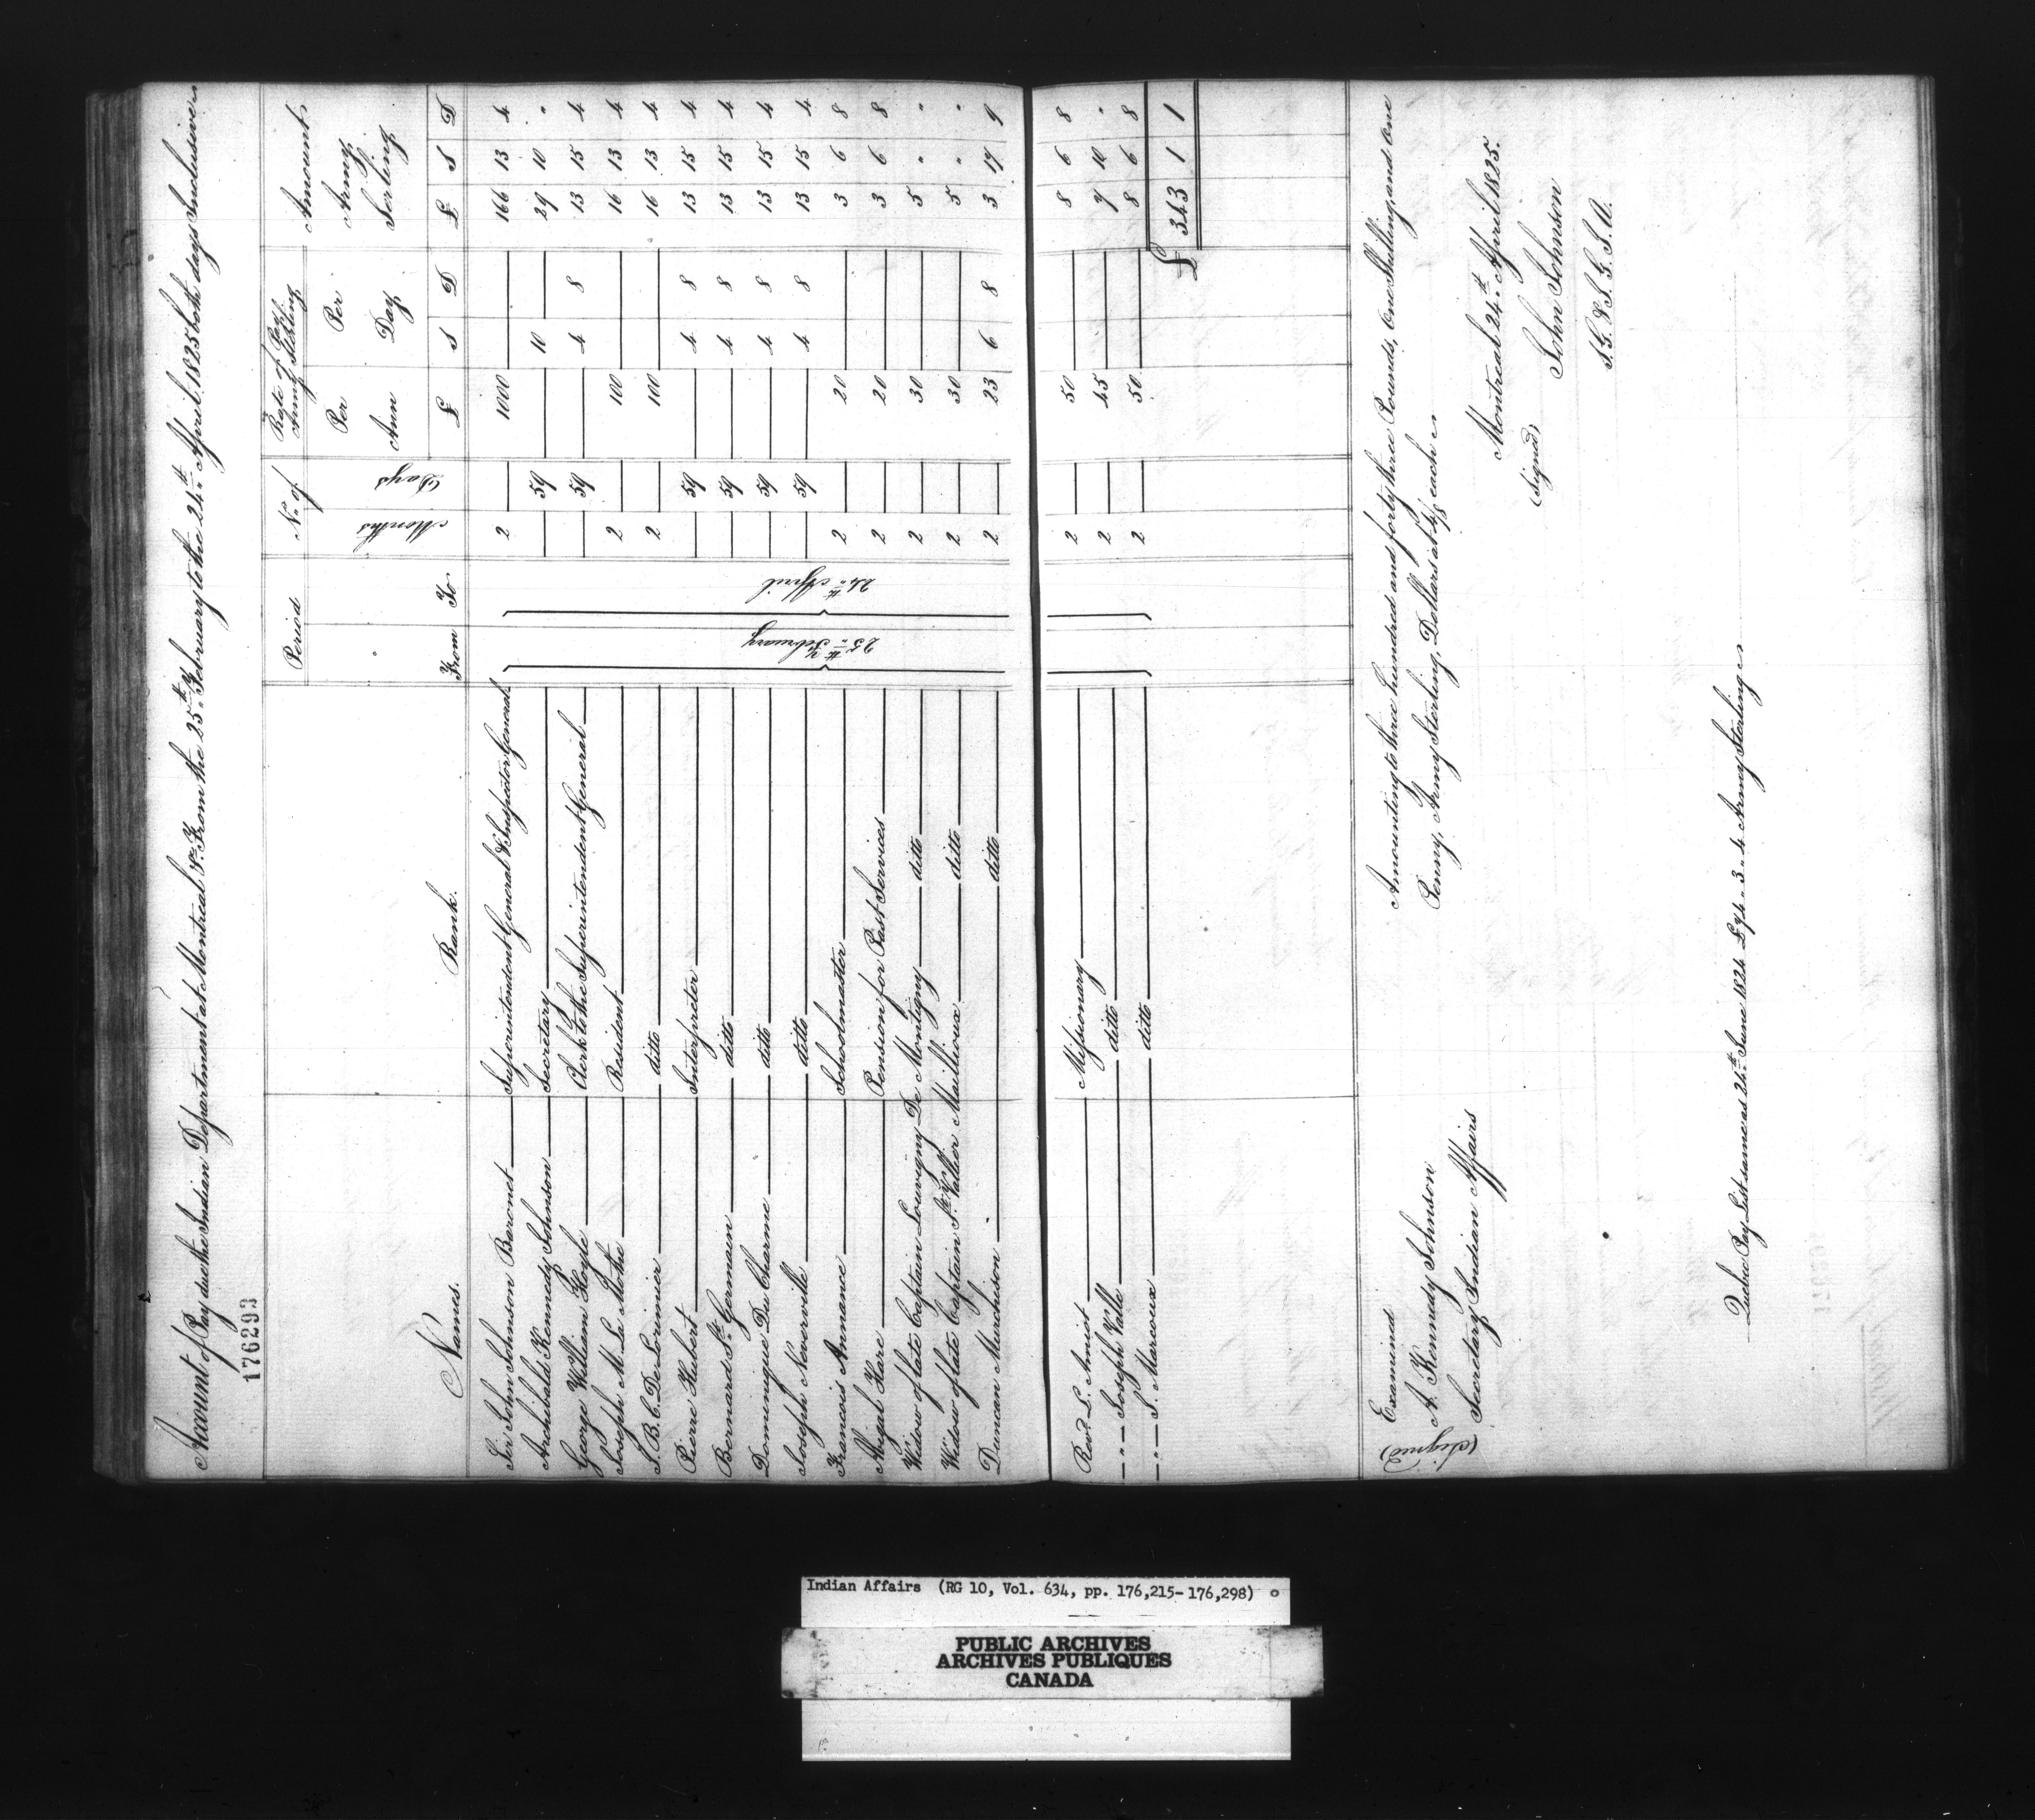 Account of Pay due the Indian Department at Montreal &ca. From the 25th February to the 24th April, 1825 both days Inclusive
176293
Names. Rank. Period No. of Rate of Pay Army Sterling Amount Army Sterling
From To Months Days Per Ann Per Day
£ S D £ S D
Sir John Johnson Baronet Superintendent General & Inspector General 2 1000 166 13 4
Archibald Kennedy Johnson Secretary 59 10 29 10 "
George William Hoyle Clerk to the Superintendent General 59 4 8 13 15 4
Joseph M. La Mothe Resident 2 100 16 13 4
J. B. C. De Lorimier ditto 2 100 16 13 4
Pierre Hubert Interpreter 59 4 8 13 15 4
Bernard St. Germain ditto 59 4 8 13 15 4
Dominique Du Charme ditto 59 4 8 13 15 4
Joseph Neverville ditto 59 4 8 13 15 4
Francois Annance Schoolmaster 2 20 3 6 8
Abigal Hare Pension for Past Services 2 20 3 6 8
Widow of late Captain Louvigny De Montigny ditto 2 30 5 " "
Widow of late Captain St. Vallier Mailloux ditto 2 30 5 " "
Duncan Murchison ditto 2 23 6 8 3 17 9
25th February
24th April
Revd. L. Amiot Missionary 2 50 8 6 8
— " — Joseph Valle ditto 2 45 7 10 "
— " — J. Marcoux ditto 2 50 8 6 8
£ 343 1 1
Amounting to three hundred and forty three Pounds, One Shilling, and One
Penny, Army Sterling, Dollars at 4/8 each
Montreal 24th April 1825.
(Signed) John Johnson
S. G. & I. G. I. A.
Examined
(Signed) A. Kennedy Johnson
Secretary Indian Affairs
Quebec Pay List same as 24th June 1824 £74. 3. 4 Army Sterling
Indian Affairs (RG 10, Vol. 634, pp. 176,215-176,298)
PUBLIC ARCHIVES
ARCHIVES PUBLIQUES
CANADA